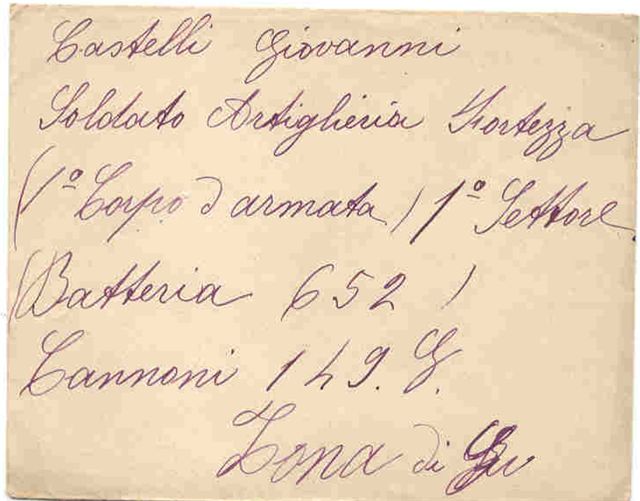 Castelli Giovanni
Soldato Artiglieria Fortezza
(1º Corpo d'armata) 1º Settore
(Batteria 652)
Cannoni 149. G.
Zona di